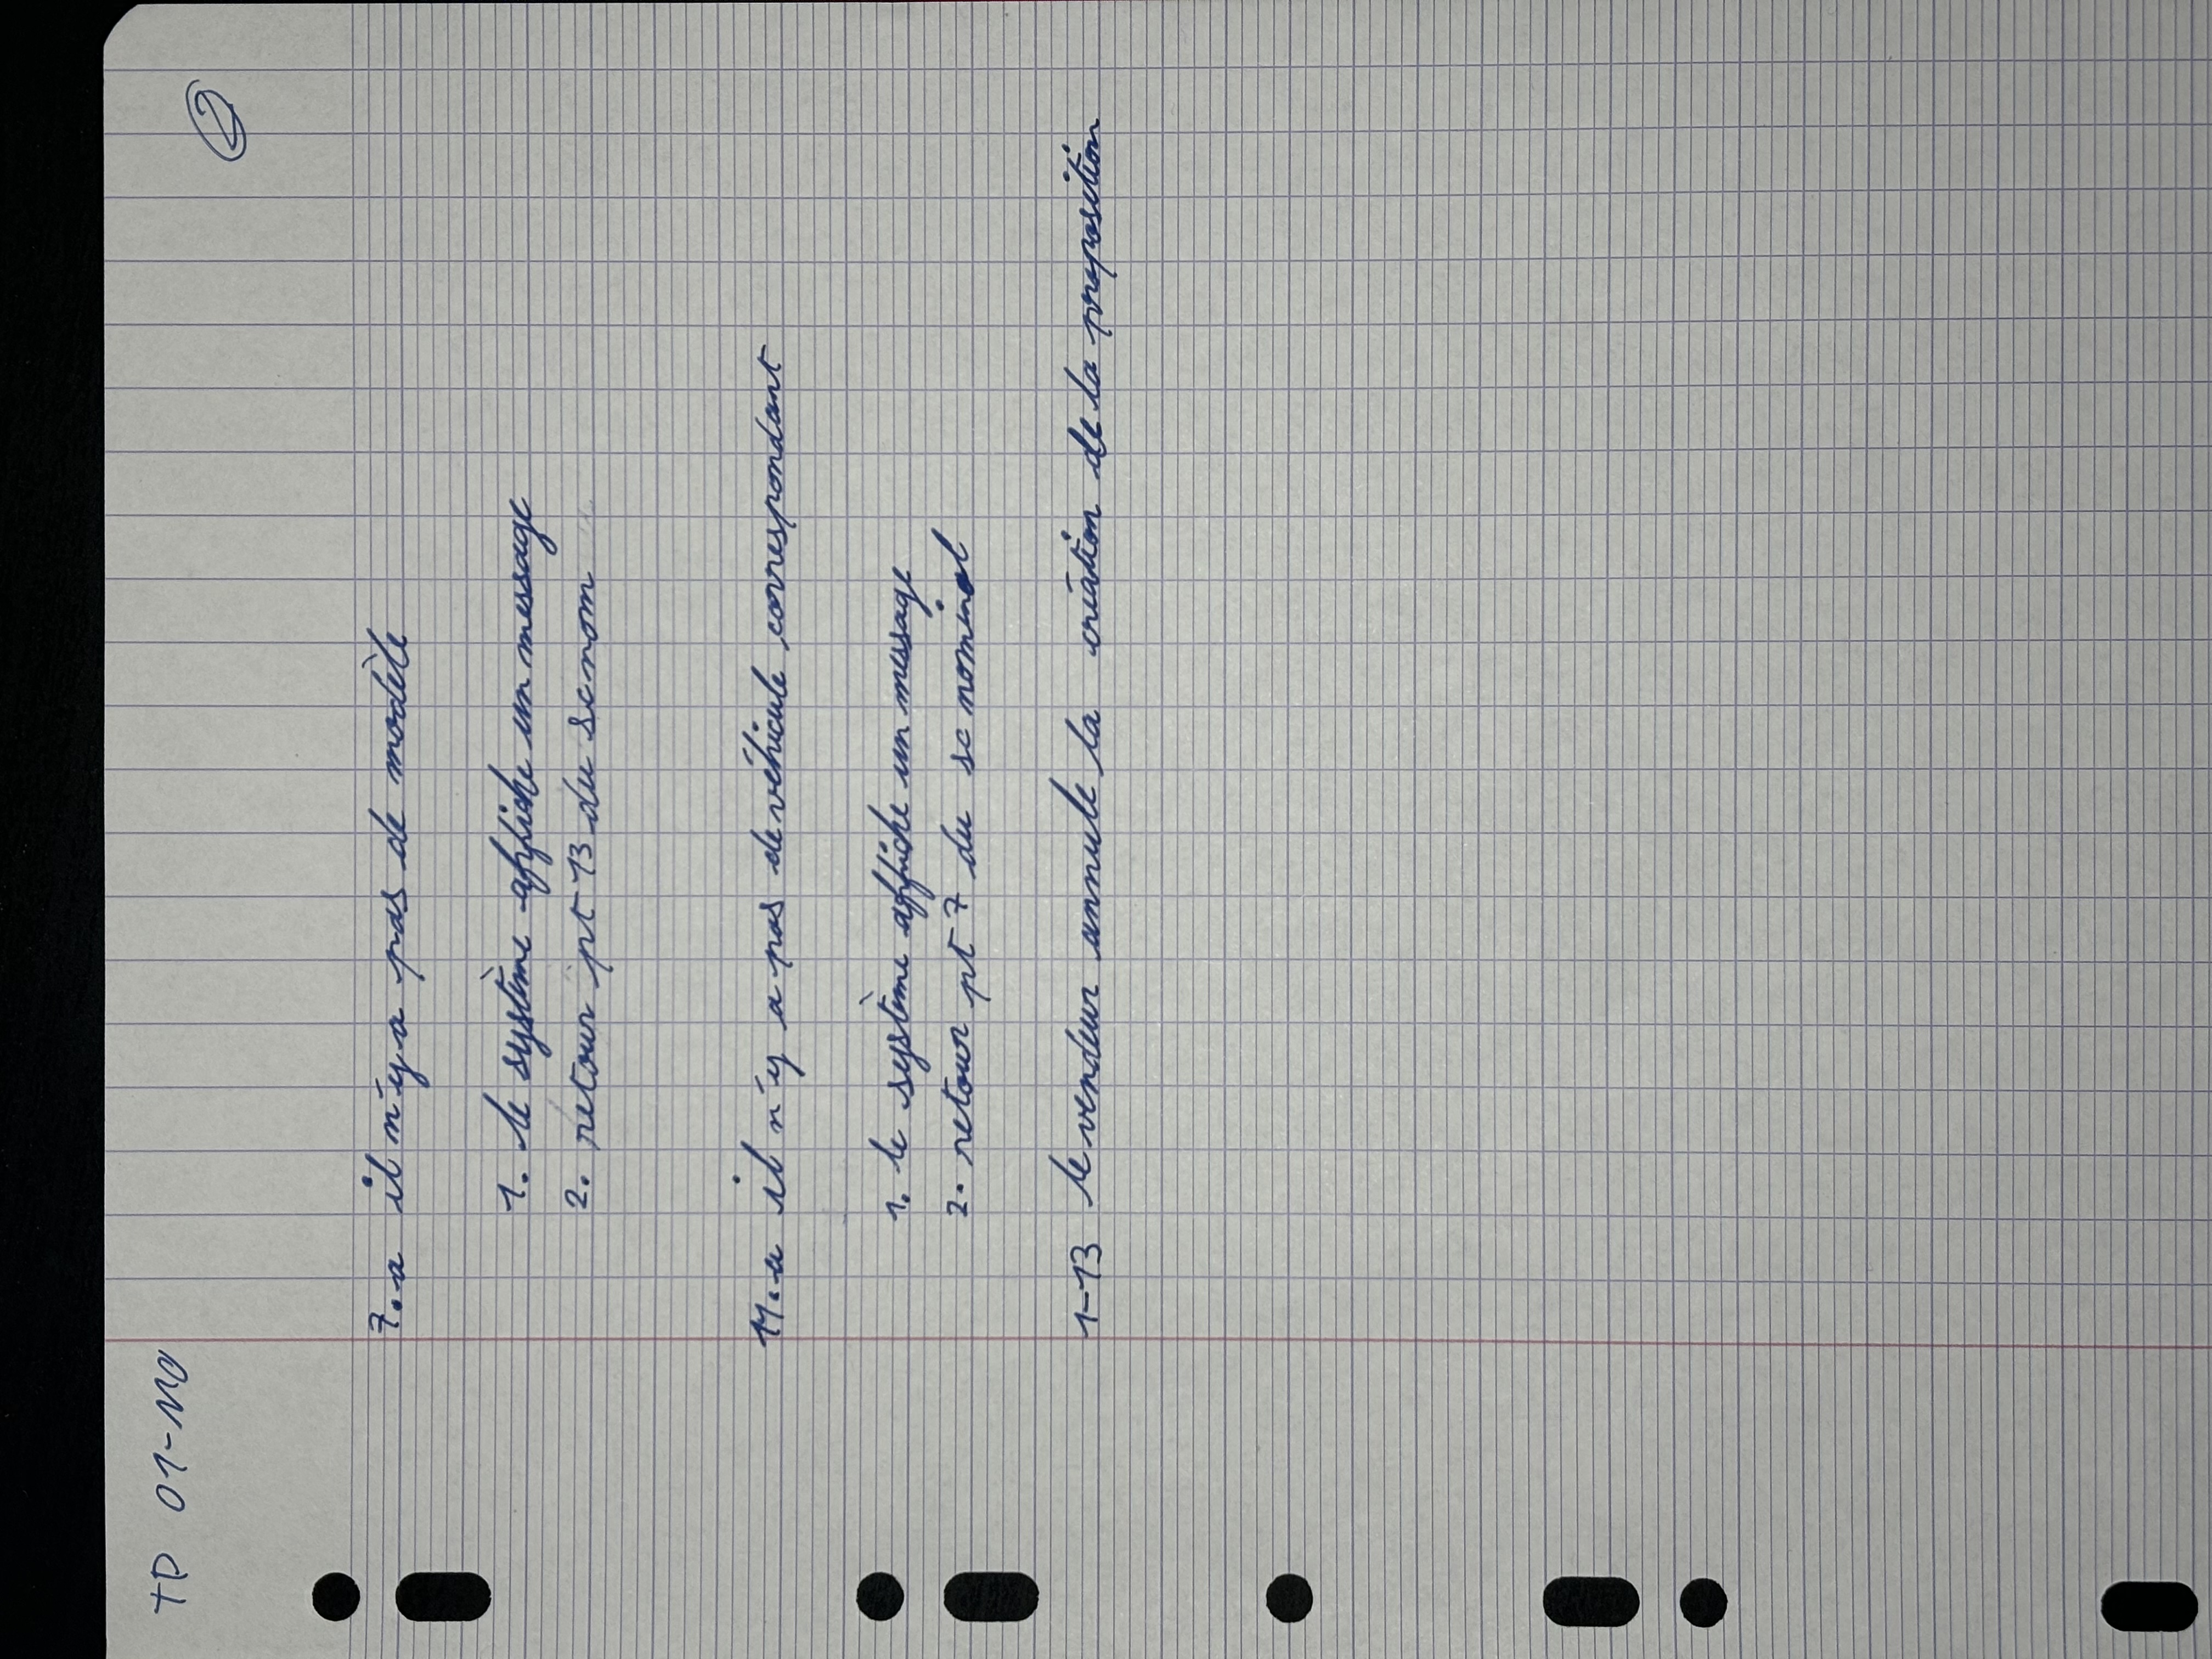 TP 01-MO
2
7.a il n'y a pas de modèle
1. le système affiche un message
2. retour pt 13 du sc nom
11.a il n'y a pas de véhicule correspondant
1. le système affiche un message
2. retour pt 7 du sc nominal
1-13 le vendeur annule la création de la proposition